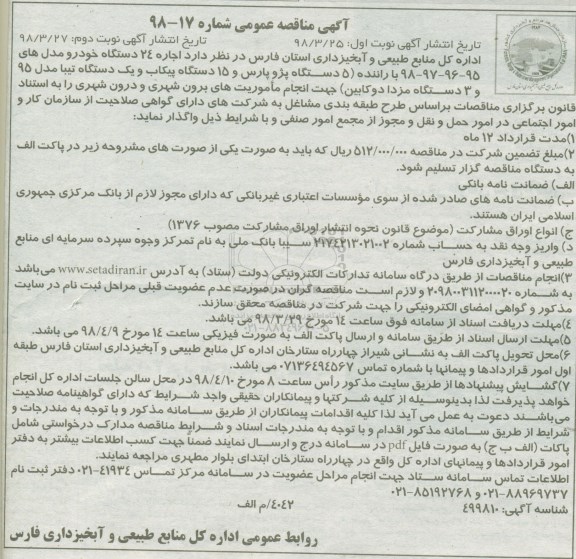 آگهی مناقصه عمومی شماره ۱۷-۹۸
تاریخ انتشار آگهی نوبت اول: ۹۸/۳/۲۵ تاریخ انتشار آگهی نوبت دوم: ۹۸/۳/۲۷
اداره کل منابع طبیعی و آبخیزداری استان فارس در نظر دارد اجاره ۲۴ دستگاه خودرو مدل های
۹۵-۹۶-۹۷-۹۸ با راننده (۵ دستگاه پژو پارس و ۱۵ دستگاه پیکاب و یک دستگاه تیبا مدل ۹۵
و ۳ دستگاه مزدا دوکابین) جهت انجام مأموریت های برون شهری و درون شهری را به استناد
قانون برگزاری مناقصات براساس طرح طبقه بندی مشاغل به شرکت های دارای گواهی صلاحیت از سازمان کار و
امور اجتماعی در امور حمل و نقل و مجوز از مجمع امور صنفی و با شرایط ذیل واگذار نماید:
۱)مدت قرارداد ۱۲ ماه
۲)مبلغ تضمین شرکت در مناقصه ۵۱۲/۰۰۰/۰۰۰ ریال که باید به صورت یکی از صورت های مشروحه زیر در پاکت الف
به دستگاه مناقصه گزار تسلیم شود.
الف) ضمانت نامه بانکی
ب) ضمانت نامه های صادر شده از سوی مؤسسات اعتباری غیربانکی که دارای مجوز لازم از بانک مرکزی جمهوری
اسلامی ایران هستند.
ج) انواع اوراق مشارکت (موضوع قانون نحوه انتشار اوراق مشارکت مصوب ۱۳۷۶)
د) واریز وجه نقد به حساب شماره ۲۱۷۴۲۱۳۰۲۱۰۰۲ سیبا بانک ملی به نام تمرکز وجوه سپرده سرمایه ای منابع
طبیعی و آبخیزداری فارس
۳)انجام مناقصات از طریق درگاه سامانه تدارکات الکترونیکی دولت (ستاد) به آدرس www.setadiran.ir می‌باشد
به شماره ۲۰۹۸۰۰۳۱۱۲۰۰۰۰۲۰ و لازم است مناقصه گران در صورت عدم عضویت قبلی مراحل ثبت نام در سایت
مذکور و گواهی امضای الکترونیکی را جهت شرکت در مناقصه محقق سازند.
۴)مهلت دریافت اسناد از سامانه فوق ساعت ۱۴ مورخ ۹۸/۳/۲۹ می باشد.
۵)مهلت ارسال اسناد از طریق سامانه و ارسال پاکت الف به صورت فیزیکی ساعت ۱۴ مورخ ۹۸/۴/۹ می باشد.
۶)محل تحویل پاکت الف به نشانی شیراز چهارراه ستارخان اداره کل منابع طبیعی و آبخیزداری استان فارس طبقه
اول امور قراردادها و پیمانها با شماره تماس ۰۷۱۳۶۴۹۴۵۶۷ می باشد.
۷)گشایش پیشنهادها از طریق سایت مذکور رأس ساعت ۸ مورخ ۹۸/۴/۱۰ در محل سالن جلسات اداره کل انجام
خواهد پذیرفت لذا بدینوسیله از کلیه شرکتها و پیمانکاران حقیقی واجد شرایط که دارای گواهینامه صلاحیت
می‌باشند دعوت به عمل می آید لذا کلیه اقدامات پیمانکاران از طریق سامانه مذکور و با توجه به مندرجات و
شرایط از طریق سامانه مذکور اقدام و با توجه به مندرجات اسناد و شرایط مناقصه مدارک درخواستی شامل
پاکات (الف ب ج) به صورت فایل pdf در سامانه درج و ارسال نمایند ضمناً جهت کسب اطلاعات بیشتر به دفتر
امور قراردادها و پیمانهای اداره کل واقع در چهارراه ستارخان ابتدای بلوار مطهری مراجعه نمایند.
اطلاعات تماس سامانه ستاد جهت انجام مراحل عضویت در سامانه مرکز تماس ۴۱۹۳۴-۰۲۱ دفتر ثبت نام
۸۸۹۶۹۷۳۷-۰۲۱ و ۸۵۱۹۲۷۶۸-۰۲۱
شناسه آگهی: ۴۹۹۸۱۰ ۴۰۴۲/م الف
روابط عمومی اداره کل منابع طبیعی و آبخیزداری فارس